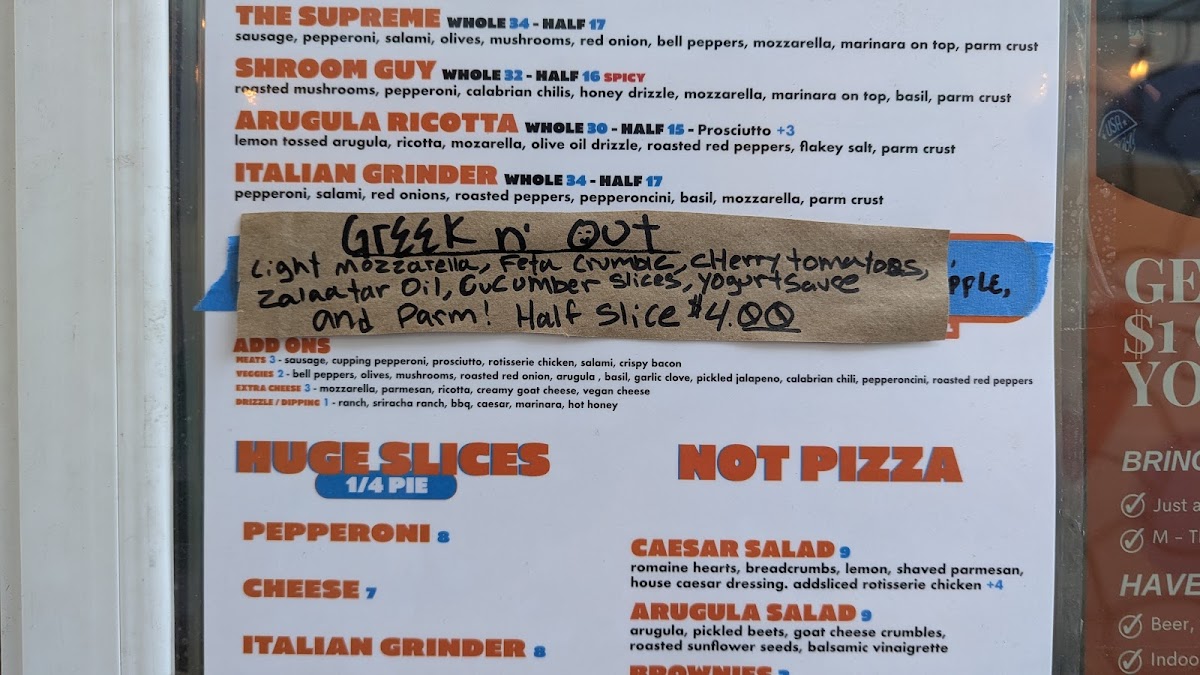 THE SUPREME WHOLE 34 - HALF 17
sausage, pepperoni, salami, olives, mushrooms, red onion, bell peppers, mozzarella, marinara on top, parm crust
SHROOM GUY WHOLE 32 - HALF 16 SPICY
roasted mushrooms, pepperoni, calabrian chilis, honey drizzle, mozzarella, marinara on top, basil, parm crust
ARUGULA RICOTTA WHOLE 30 - HALF 15 - Prosciutto +3
lemon tossed arugula, ricotta, mozarella, olive oil drizzle, roasted red peppers, flakey salt, parm crust
ITALIAN GRINDER WHOLE 34 - HALF 17
pepperoni, salami, red onions, roasted peppers, pepperoncini, basil, mozzarella, parm crust
GrEEK n' OUT
Light mozzarella, Feta Crumble, cHerry tomatoes,
Zalaatar Oil, Cucumber slices, Yogurt Sauce
and Parm! Half Slice $4.00
PPLE,
ADD ONS
MEATS 3 - sausage, cupping pepperoni, prosciutto, rotisserie chicken, salami, crispy bacon
VEGGIES 2 - bell peppers, olives, mushrooms, roasted red onion, arugula , basil, garlic clove, pickled jalapeno, calabrian chili, pepperoncini, roasted red peppers
EXTRA CHEESE 3 - mozzarella, parmesan, ricotta, creamy goat cheese, vegan cheese
DRIZZLE / DIPPING 1 - ranch, sriracha ranch, bbq, caesar, marinara, hot honey
HUGE SLICES
1/4 PIE
PEPPERONI 8
CHEESE 7
ITALIAN GRINDER 8
NOT PIZZA
CAESAR SALAD 9
romaine hearts, breadcrumbs, lemon, shaved parmesan,
house caesar dressing. addsliced rotisserie chicken +4
ARUGULA SALAD 9
arugula, pickled beets, goat cheese crumbles,
roasted sunflower seeds, balsamic vinaigrette
BROWNIES
USA
GE
$1
YO
BRING
Just a
M - T
HAVE
Beer,
Indoo